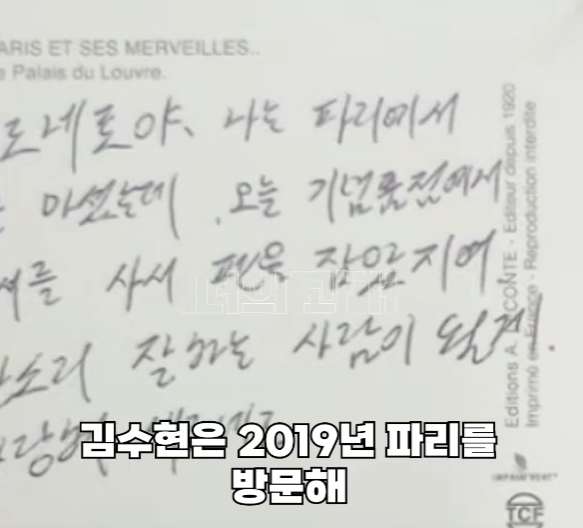 ARIS ET SES MERVEILLES..
e Palais du Louvre.
로네로야, 나는 파리에서
마셨는데 . 오늘 기념품점에서
서를 사서
잘하는 사람이 될게.
Editions A. LECONTE - Editeur depuis 1920
Imprimé en France - Reproduction interdite
김수현은 2019년 파리를
방문해
IMPRIM'VERT
TCF